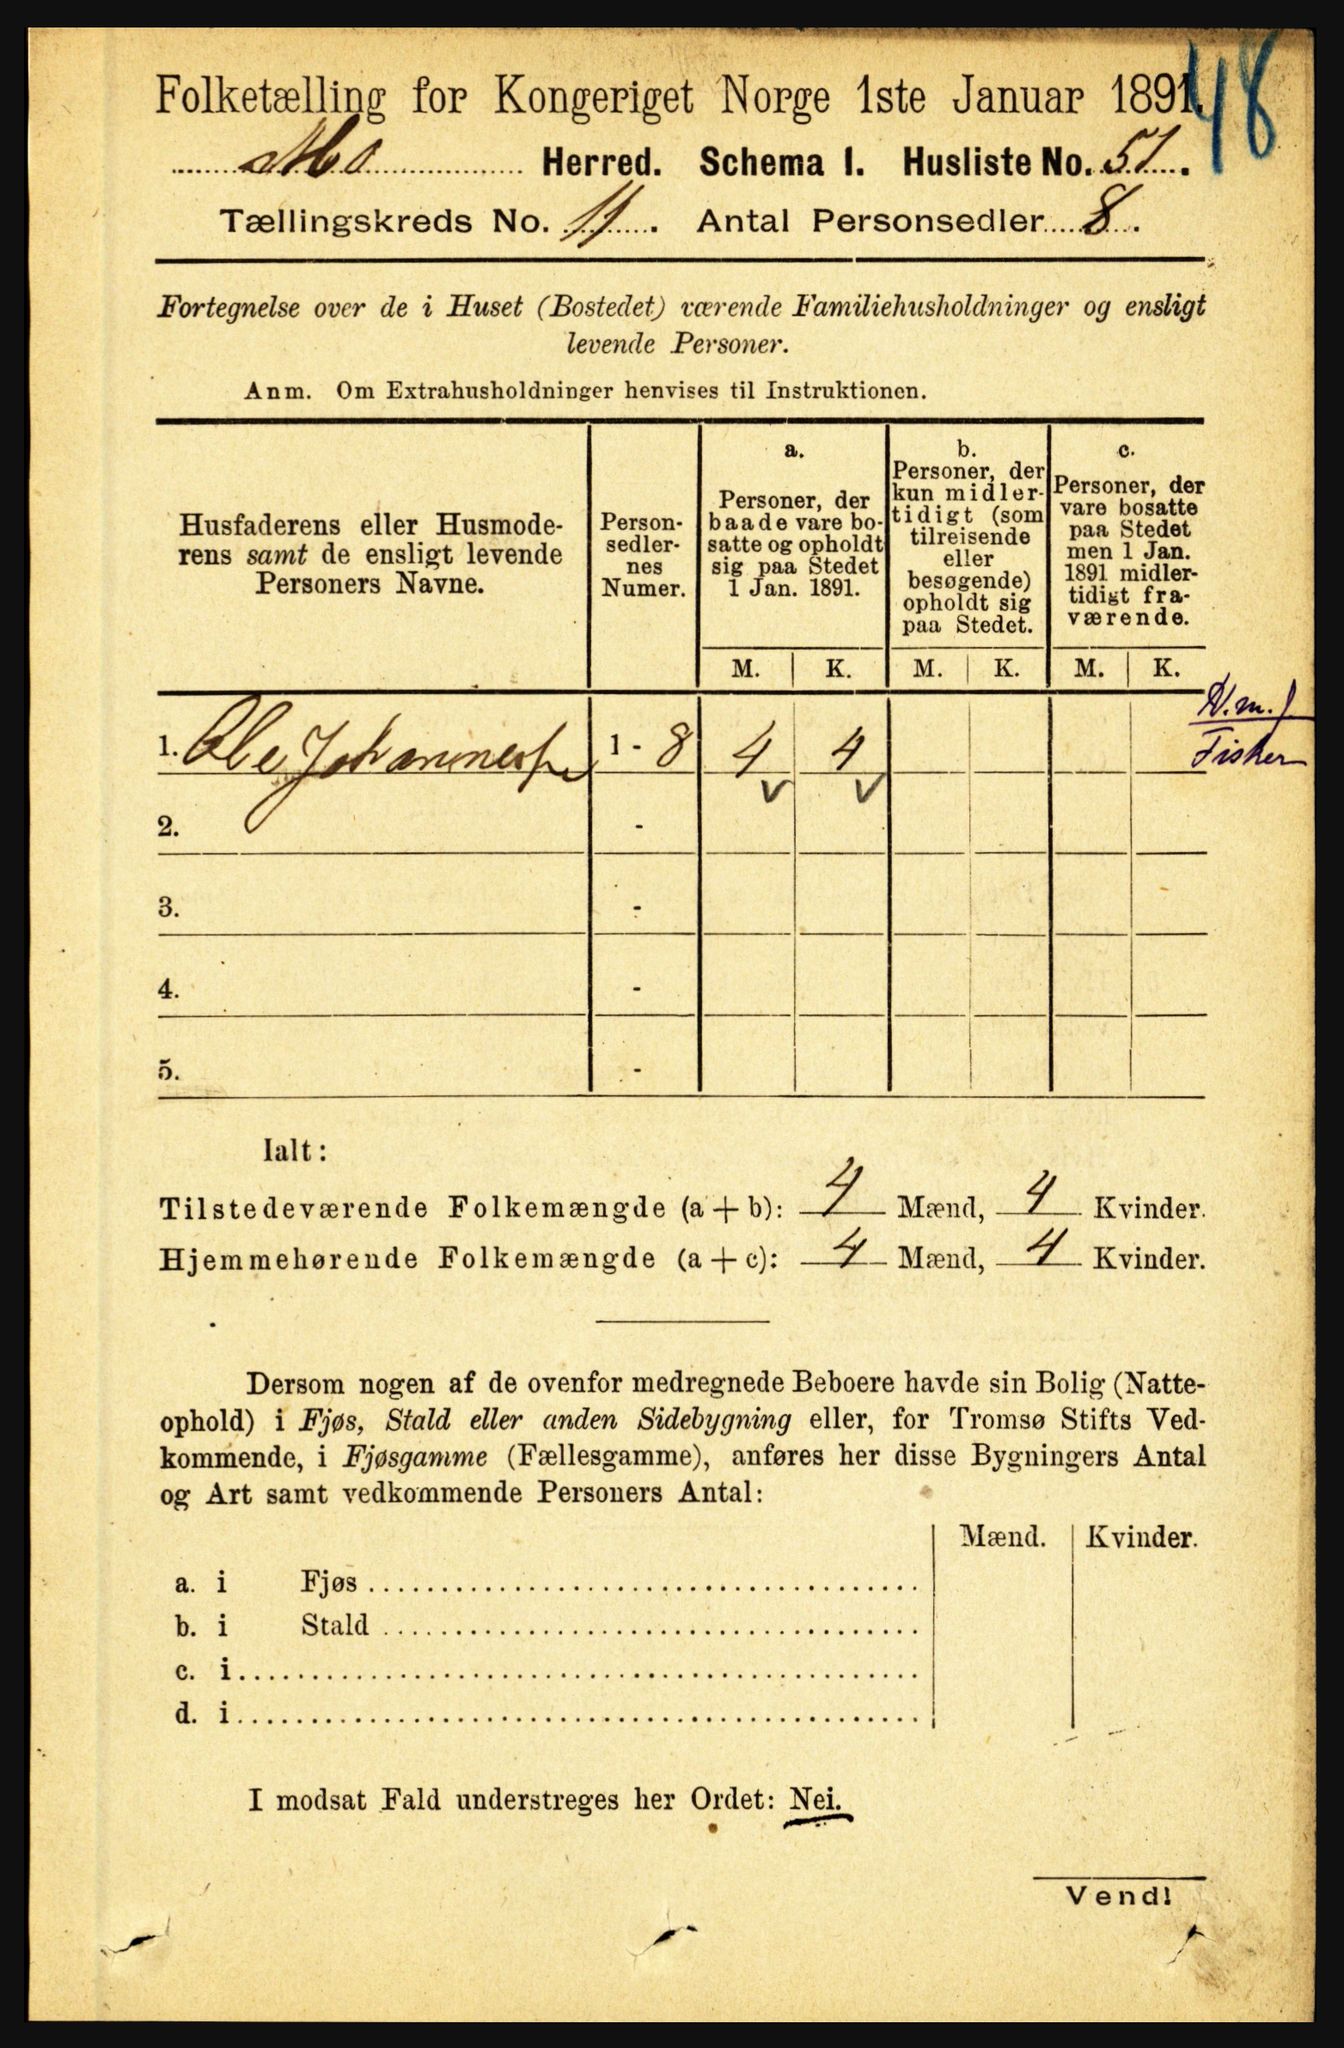 48
Folketælling for Kongeriget Norge 1ste Januar 1891.
Mo Herred. Schema I. Husliste No. 51.
Tællingskreds No. 11. Antal Personsedler 8.
Fortegnelse over de i Huset (Bostedet) værende Familiehusholdninger og ensligt
levende Personer.
Anm. Om Extrahusholdninger henvises til Instruktionen.
Husfaderens eller Husmode-
rens samt de ensligt levende
Personers Navne.
Person-
sedler-
nes
Numer.
a.
Personer, der
baade vare bo-
satte og opholdt
sig paa Stedet
1 Jan. 1891.
b.
Personer, der
kun midler-
tidigt (som
tilreisende
eller
besøgende)
opholdt sig
paa Stedet.
c.
Personer, der
vare bosatte
paa Stedet
men 1 Jan.
1891 midler-
tidigt fra-
værende.
M. K. M. K. M. K.
N.m.f
Fisker
1. Ole Johannesen 1 - 8 4 4
v v
2. -
3. -
4. -
5. -
Ialt:
Tilstedeværende Folkemængde (a + b): 4 Mænd, 4 Kvinder.
Hjemmehørende Folkemængde (a + c): 4 Mænd, 4 Kvinder.
Dersom nogen af de ovenfor medregnede Beboere havde sin Bolig (Natte-
ophold) i Fjøs, Stald eller anden Sidebygning eller, for Tromsø Stifts Ved-
kommende, i Fjøsgamme (Fællesgamme), anføres her disse Bygningers Antal
og Art samt vedkommende Personers Antal:
Mænd. Kvinder.
a. i Fjøs
b. i Stald
c. i
d. i
I modsat Fald understreges her Ordet: Nei.
Vend!